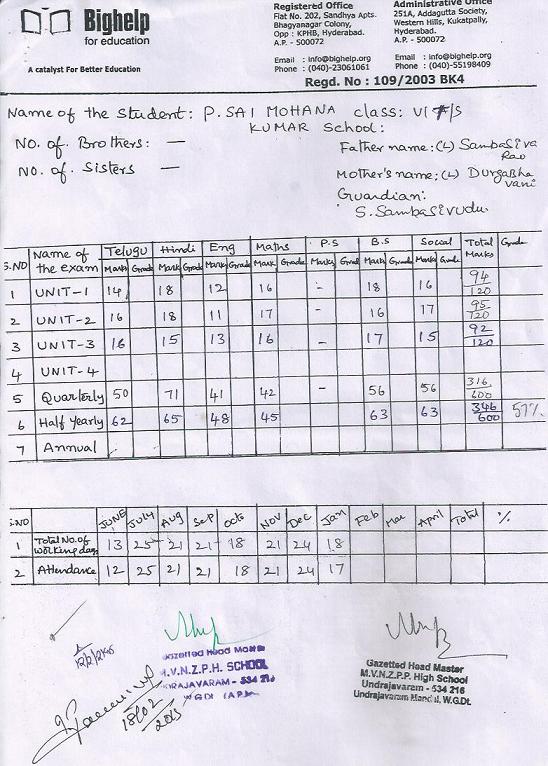 Bighelp
for education
A catalyst For Better Education
Registered Office
Flat No. 202, Sandhya Apts.
Bhagyanagar Colony,
Opp : KPHB, Hyderabad.
A.P. - 500072
Email : info@bighelp.org
Phone : (040)-23061061
Administrative Office
251A, Addagutta Society,
Western Hills, Kukatpally,
Hyderabad.
A.P. - 500072
Email : info@bighelp.org
Phone : (040)-55198409
Regd. No : 109/2003 BK4
Name of the student: P. SAI MOHANA class: VI
KUMAR School:
NO. of. Brothers: —
NO. of. Sisters —
Father name: (L) Sambasiva
Rao
Mother's name: (L) Durgabha
vani
Guardian:
S. Sambasivudu
S.NO Name of the exam Telugu Hindi Eng Maths P.S B.S Social Total Marks Grade
Mark Grade Mark Grade Mark Grade Mark Grade Marks Grad Mark Grade Mark Grade
1 UNIT-1 14 18 12 16 - 18 16 94/120
2 UNIT-2 16 18 11 17 - 16 17 95/120
3 UNIT-3 16 15 13 16 - 17 15 92/120
4 UNIT-4
5 Quarterly 50 71 41 42 - 56 56 316/600
6 Half Yearly 62 65 48 45 63 63 346/600 57%
7 Annual
S.NO JUNE July Aug Sep Octo Nov Dec Jan Feb Mar April Total %
1 Total No. of working days 13 25 21 21 18 21 24 18
2 Attendance 12 25 21 21 18 21 24 17
Gazetted Head Master
M.V.N.Z.P.H. SCHOOL
UNDRAJAVARAM - 534 216
W.GDt. (A.P.)
18/02
2015
Gazetted Head Master
M.V.N.Z.P.P. High School
Undrajavaram - 534 216
Undrajavaram Mandal, W.G.Dt.